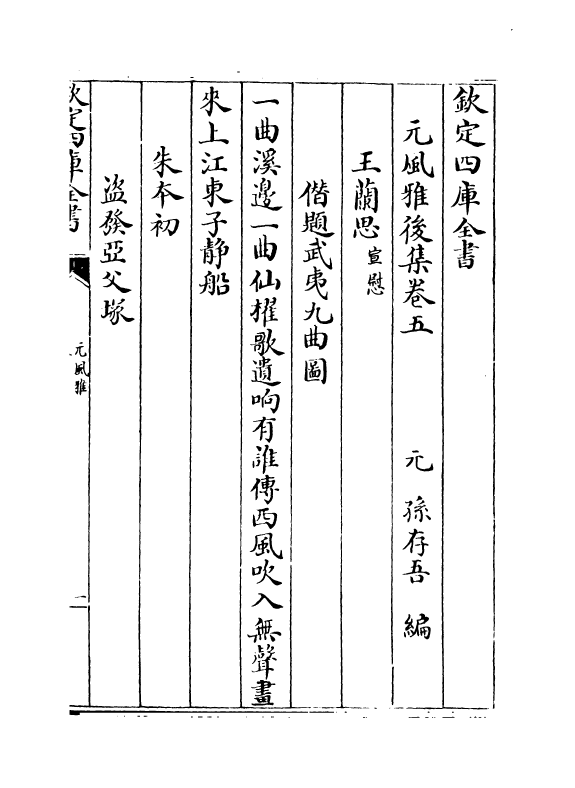 欽定四庫全書
元風雅後集卷五 元 孫存吾 編
王蘭思宣慰
偕題武夷九曲圖
一曲溪邊一曲仙櫂歌遺响有誰傳西風吹入無聲畫
來上江東子静船
朱本初
盗發亞父塚
欽定四庫全書
元風雅